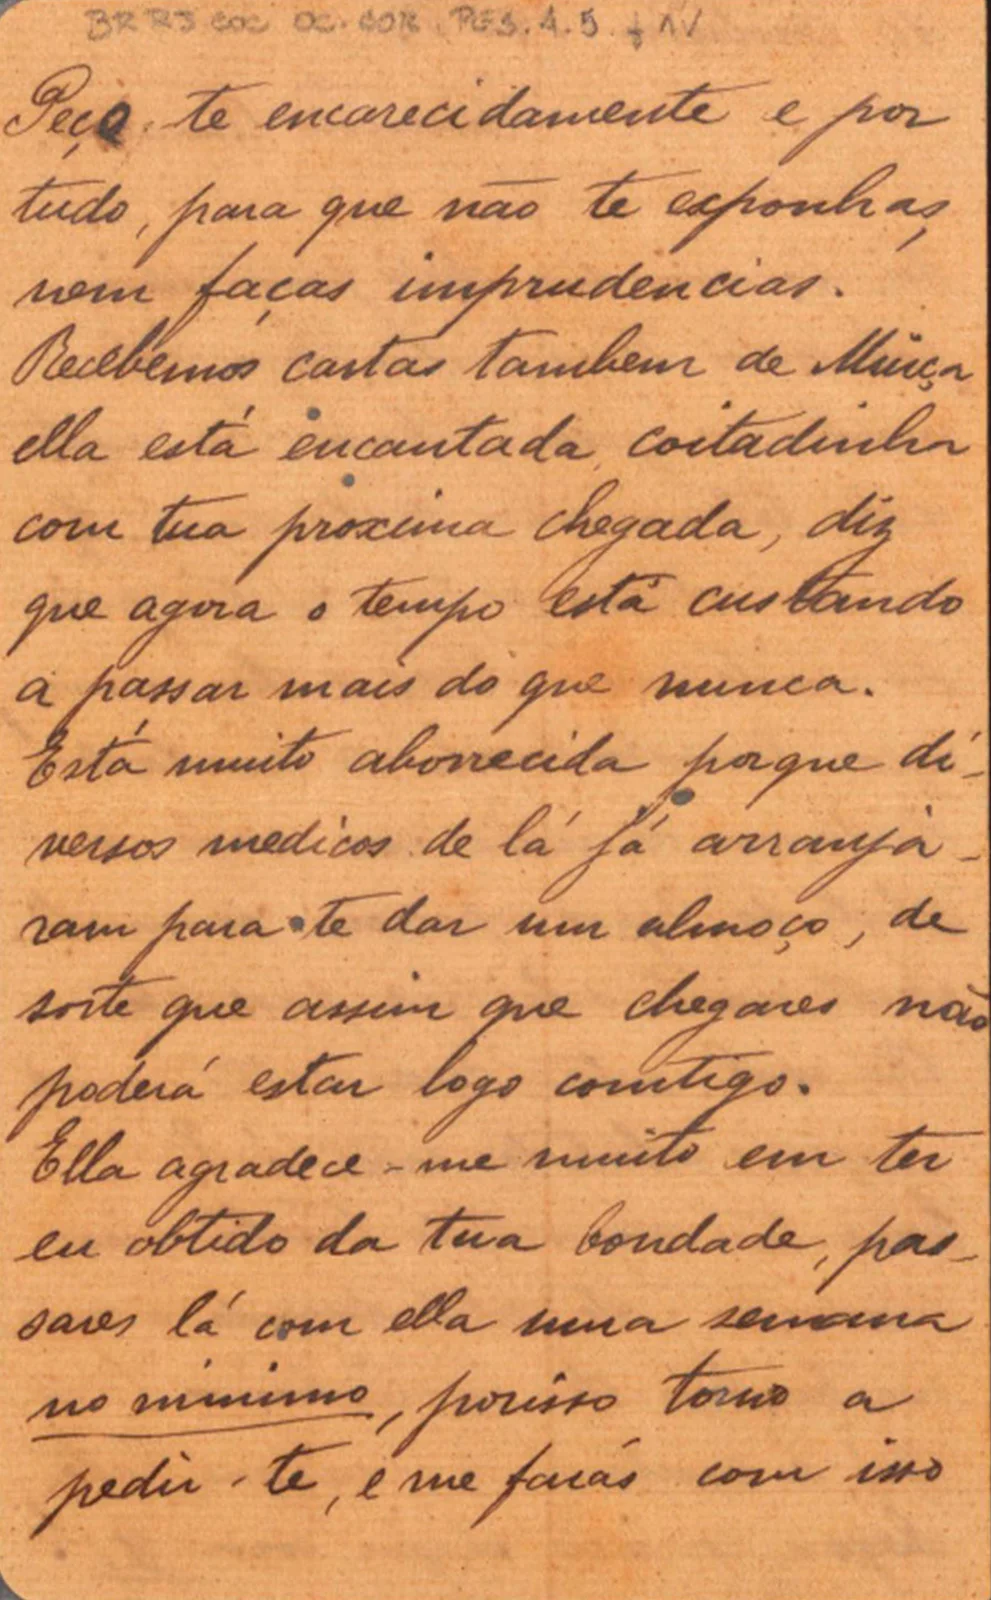 BR RJ COC OC. COR. PES. 4.5. f ΛV
Peço-te encarecidamente e por
tudo, para que não te exponhas,
nem faças imprudencias.
Recebemos cartas tambem de Miuça
ella está encantada, coitadinha
com tua proxima chegada, diz
que agora o tempo está custando
a passar mais do que nunca.
Está muito aborrecida porque di-
versos medicos de lá já arranja-
ram para te dar um almoço, de
sorte que assim que chegares não
poderá estar logo comtigo.
Ella agradece-me muito em ter
eu obtido da tua bondade, pas-
sares lá com ella uma semana
no minimo, porisso torno a
pedir-te, e me farás com isso